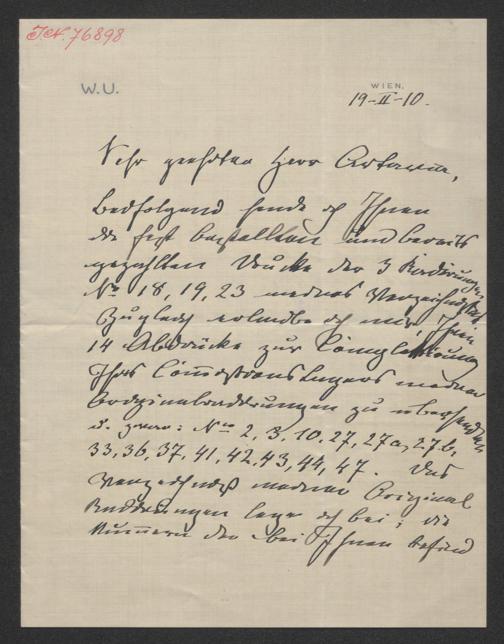 I.N. 76898
W.U.
WIEN,
19-II-10.
Sehr geehrter Herr Artaria,
Beifolgend sende ich Ihnen
die fest bestellten und bereits
gezahlten Drucke der 3 Radierungen
No 18, 19, 23 meines Verzeichnisses
Zugleich erlaube ich mir, Ihnen
14 Abdrücke zur Completierung
Ihres Commissionslagers meiner
Originalradierungen zu übersenden
u. zwar: No 2, 3, 10, 27, 27a, 27b,
33, 36, 37, 41, 42, 43, 44, 47. Das
Verzeichniß meiner Original
Radierungen lege ich bei; die
Nummern der bei Ihnen befind